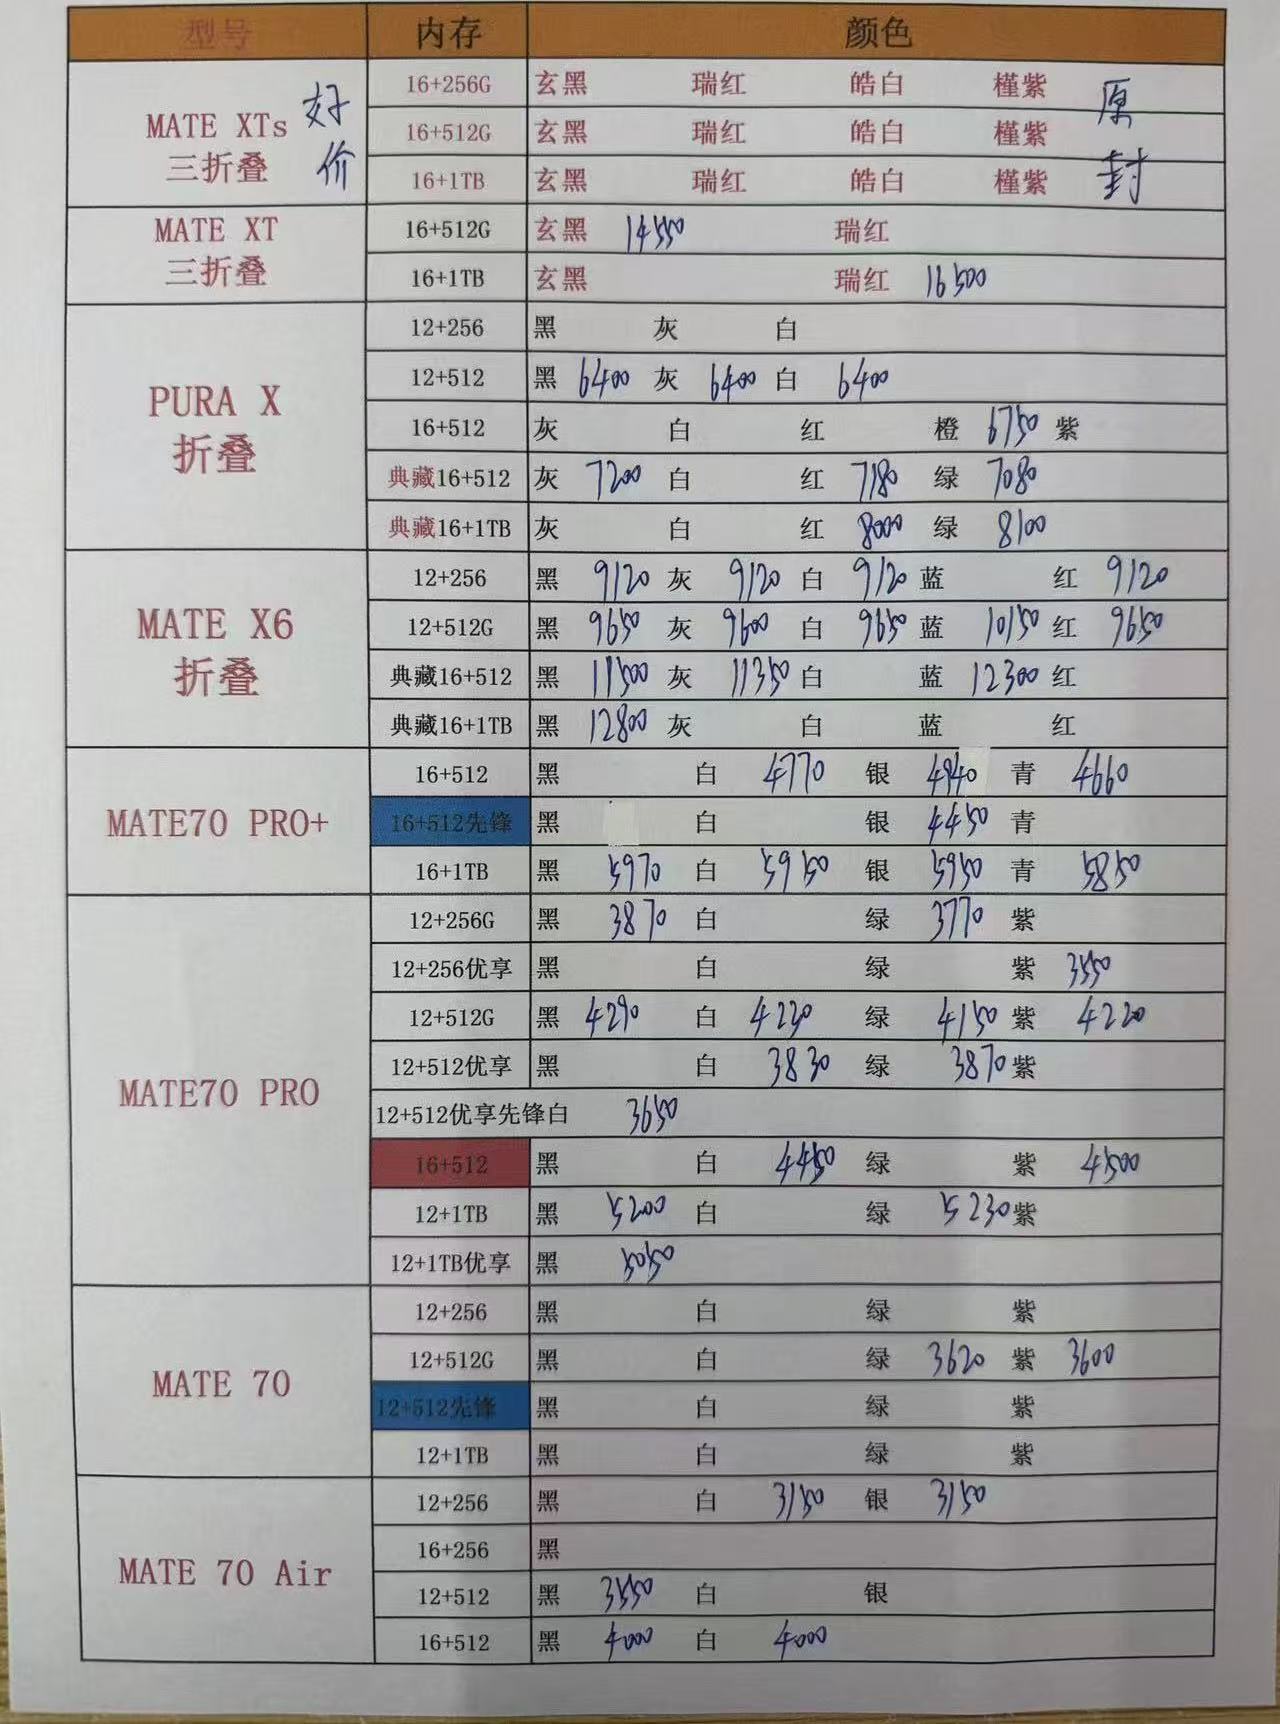 型号 内存 颜色
MATE XTs 三折叠 好价 原封
16+256G 玄黑 瑞红 皓白 槿紫
16+512G 玄黑 瑞红 皓白 槿紫
16+1TB 玄黑 瑞红 皓白 槿紫
MATE XT 三折叠
16+512G 玄黑 14550 瑞红
16+1TB 玄黑 瑞红 16500
PURA X 折叠
12+256 黑 灰 白
12+512 黑 6400 灰 6400 白 6400
16+512 灰 白 红 橙 6750 紫
典藏16+512 灰 7200 白 红 7180 绿 7080
典藏16+1TB 灰 白 红 8000 绿 8100
MATE X6 折叠
12+256 黑 9120 灰 9120 白 9120 蓝 红 9120
12+512G 黑 9650 灰 9600 白 9650 蓝 10150 红 9650
典藏16+512 黑 11500 灰 11350 白 蓝 12300 红
典藏16+1TB 黑 12800 灰 白 蓝 红
MATE70 PRO+
16+512 黑 白 4770 银 4940 青 4660
16+512先锋 黑 白 银 4450 青
16+1TB 黑 5970 白 5950 银 5950 青 5850
MATE70 PRO
12+256G 黑 3870 白 绿 3770 紫
12+256优享 黑 白 绿 紫 3550
12+512G 黑 4290 白 4220 绿 4150 紫 4220
12+512优享 黑 白 3830 绿 3870 紫
12+512优享先锋白 3650
16+512 黑 白 4450 绿 紫 4500
12+1TB 黑 5200 白 绿 5230 紫
12+1TB优享 黑 5050
MATE 70
12+256 黑 白 绿 紫
12+512G 黑 白 绿 3620 紫 3600
12+512先锋 黑 白 绿 紫
12+1TB 黑 白 绿 紫
MATE 70 Air
12+256 黑 白 3150 银 3150
16+256 黑
12+512 黑 3550 白 银
16+512 黑 4000 白 4000